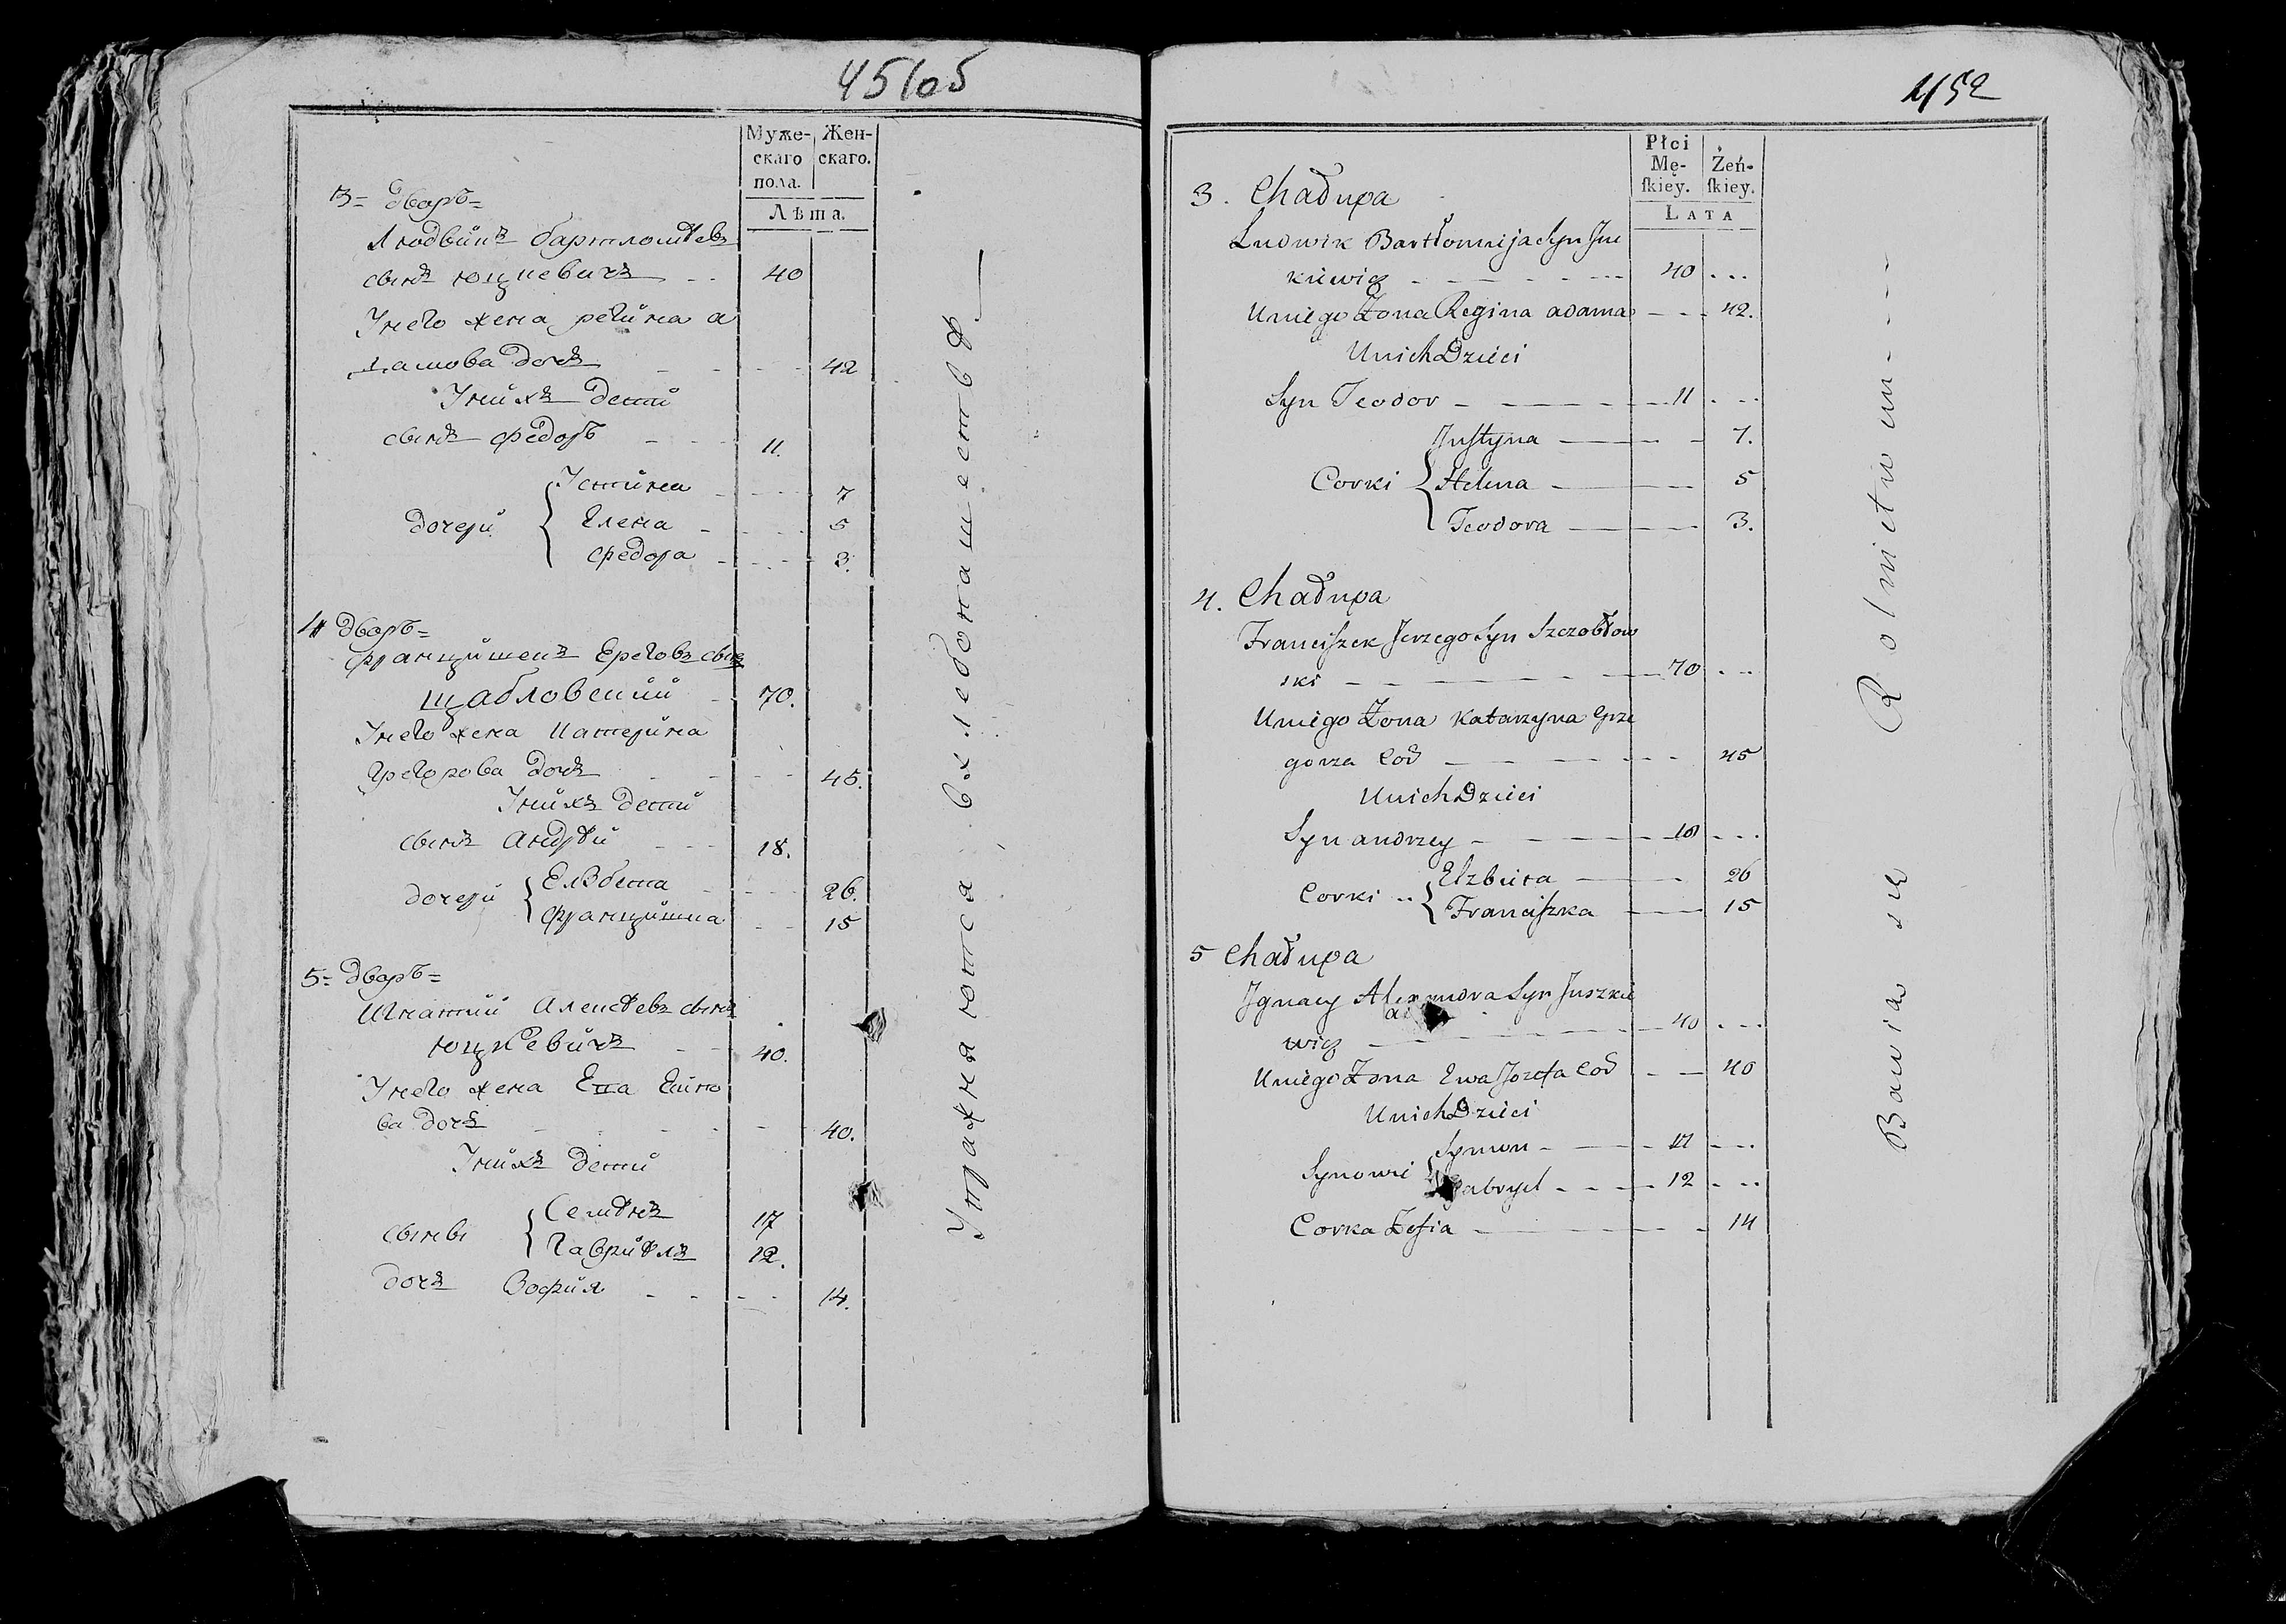 45105
Муже- Жен-
скаго скаго.
пола.
Лѣта.
3= дворъ=
Людвикъ бартломѣевъ
сынъ юцкевичъ 40
Унего жена регина а
дамова дочъ 42
Унихъ дети
сынъ федоръ 11.
Устина 7
дочери Елена 5
федора 3.
4 дворъ=
францишекъ Ереговъ сынъ
щабловский 70.
Унего жена Катерина
Грегорова дочъ 45.
Унихъ дети
сынъ Андрѣй 18.
дочери Елзбета 26.
францишка 15
5= дворъ=
Игнатий Алексѣевъ сынъ
юцкевичъ 40.
Унего жена Ева
ва дочъ 40.
Унихъ дети
сыны Семѣнъ 17
Гавриѣлъ 12.
дочъ Зофия 14.
Упражняются вхлебопашествѣ
452
Płci
Mę- Żeń-
skiey. skiey.
LATA
3. Chałupa
Ludwik Bartłomieja Syn Juc
kiewicz 40
Uniego Żona Regina adama 42.
Unich Dzieci
Syn Teodor 11
Justyna 7.
Corki Helena 5
Teodora 3.
4. Chałupa
Franciszek Jerzego Syn Szczobłow
ski 70
Uniego Żona Katarzyna Grze
gorza Cod 45
Unich Dzieci
Syn andrzey 18
Elzbieta 26
Corki Franciszka 15
5 Chałupa
Ignacy Alexandra Syn Juszkie
wicz 40
Uniego Żona Ewa Jozefa Cod 40
Unich Dzieci
Symon 17
Synowie Gabryel 12
Corka Zofia 14
Bawią się Rolnictwem